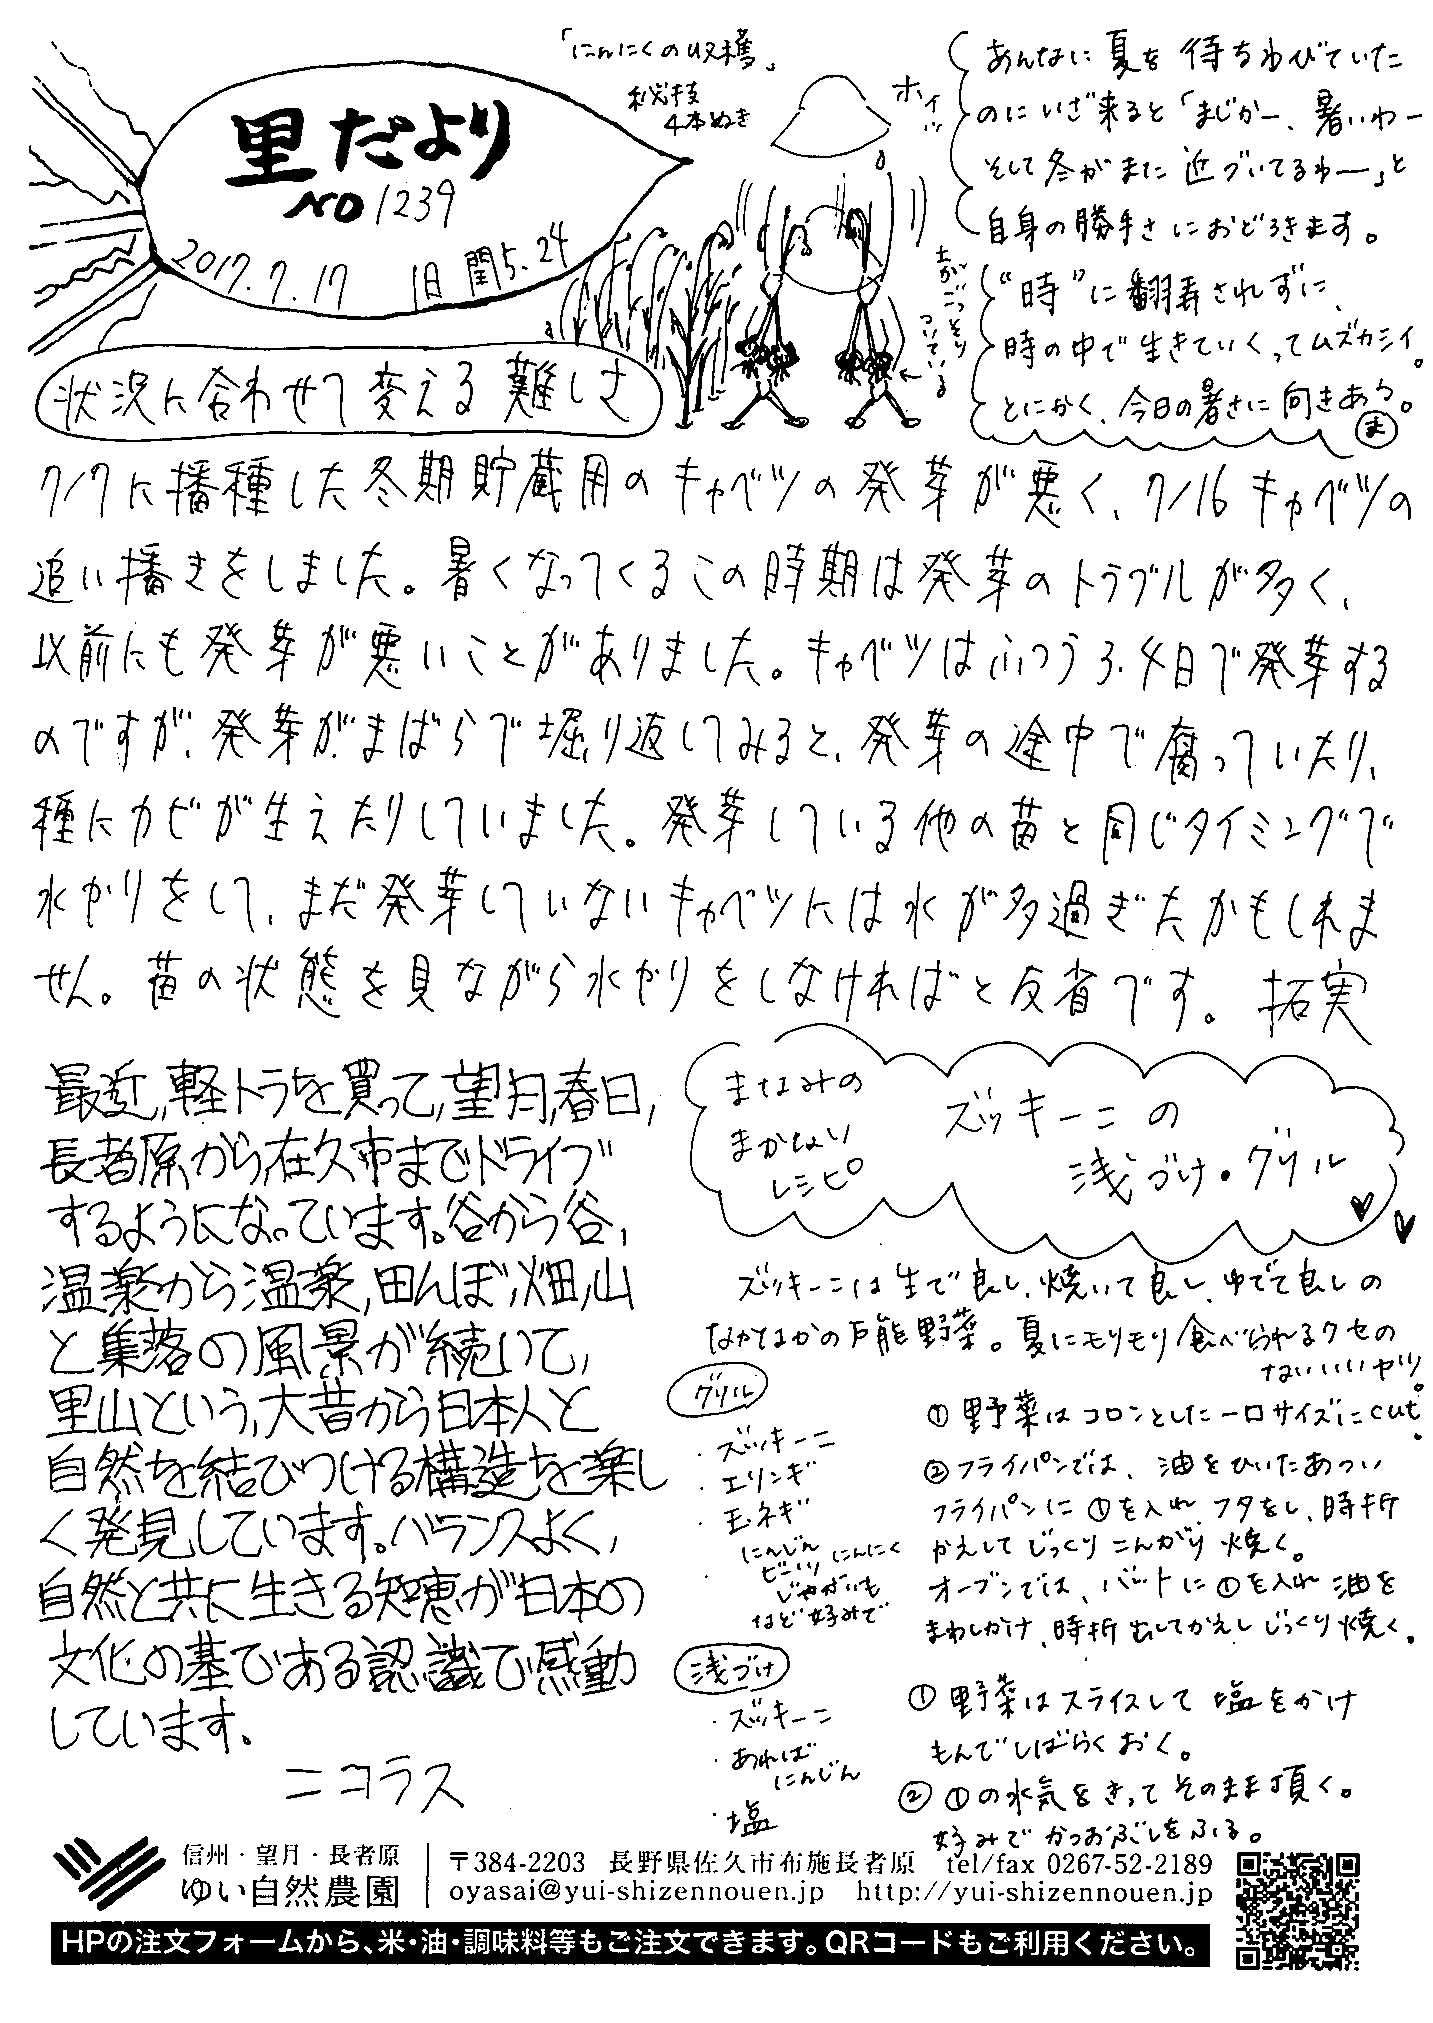 里だより
NO 1239
2017.7.17 1日 閏5.24
「にんにくの収穫」
秘技
4本ぬき
ホイッ
土がごっそり
ついている
あんなに夏を待ちわびていた
のにいざ来ると「まじかー、暑いわー
そして冬がまた近づいてるわー」と
自身の勝手さにおどろきます。
"時"に翻弄されずに、
時の中で生きていくってムズカシイ。
とにかく、今日の暑さに向きあう。
ま
状況に合わせて変える難しさ
7/7に播種した冬期貯蔵用のキャベツの発芽が悪く、7/16キャベツの
追い播きをしました。暑くなってくるこの時期は発芽のトラブルが多く、
以前にも発芽が悪いことがありました。キャベツはふつう3.4日で発芽する
のですが、発芽がまばらで堀り返してみると、発芽の途中で腐っていたり、
種にカビが生えたりしていました。発芽している他の苗と同じタイミングで
水やりをして、まだ発芽していないキャベツには水が多過ぎたかもしれま
せん。苗の状態を見ながら水やりをしなければと反省です。 拓実
最近,軽トラを買って,望月,春日,
長者原,から,佐久市までドライブ
するようになっています。谷から谷,
温楽から温楽,田んぼ,畑,山
と集落の風景が続いて,
里山という,大昔から日本人と
自然を結びつける構造を楽し
く発見しています。バランスよく,
自然と共に生きる知恵が日本の
文化の基である認識で感動
しています。
ニコラス
まなみの
まかない
レシピ
ズッキーニの
浅づけ・グリル
ズッキーニは生で良し、焼いて良し、ゆでて良しの
なかなかの万能野菜。夏にモリモリ食べられるクセの
ないいいヤツ。
グリル
・ズッキーニ
・エリンギ
・玉ネギ
にんじん
ピーマン にんにく
じゃがいも
など好みで
① 野菜はコロンとした一口サイズにcut.
② フライパンでは、油をひいたあつい
フライパンに①を入れ、フタをし、時折
かえしてじっくりこんがり焼く。
オーブンでは、バットに①を入れ油を
まわしかけ、時折出してかえしじっくり焼く。
浅づけ
・ズッキーニ
・あれば
にんじん
・塩
① 野菜はスライスして塩をかけ
もんでしばらくおく。
② ①の水気をきってそのまま頂く。
好みでかつおぶしをふる。
信州・望月・長者原
ゆい自然農園
〒384-2203 長野県佐久市布施長者原 tel/fax 0267-52-2189
oyasai@yui-shizennouen.jp http://yui-shizennouen.jp
HPの注文フォームから、米・油・調味料等もご注文できます。QRコードもご利用ください。